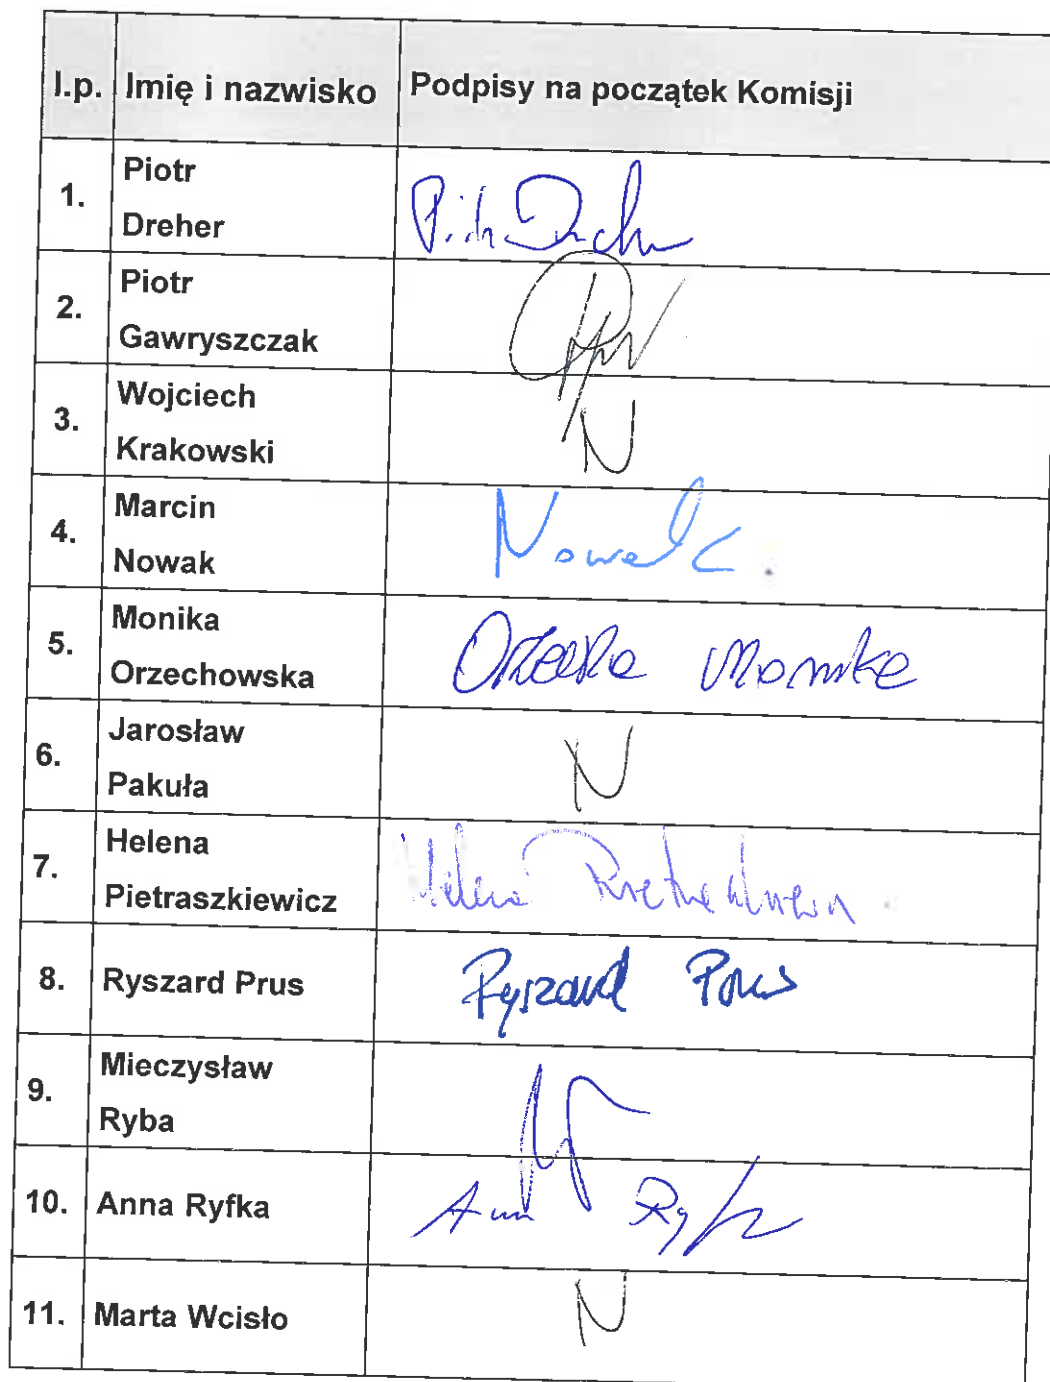 l.p. Imię i nazwisko Podpisy na początek Komisji
1. Piotr
Dreher
2. Piotr
Gawryszczak
3. Wojciech
Krakowski N
4. Marcin
Nowak Nowak
5. Monika
Orzechowska Monika
6. Jarosław
Pakuła N
7. Helena
Pietraszkiewicz Helena
8. Ryszard Prus Ryszard Prus
9. Mieczysław
Ryba
10. Anna Ryfka
11. Marta Wcisło N